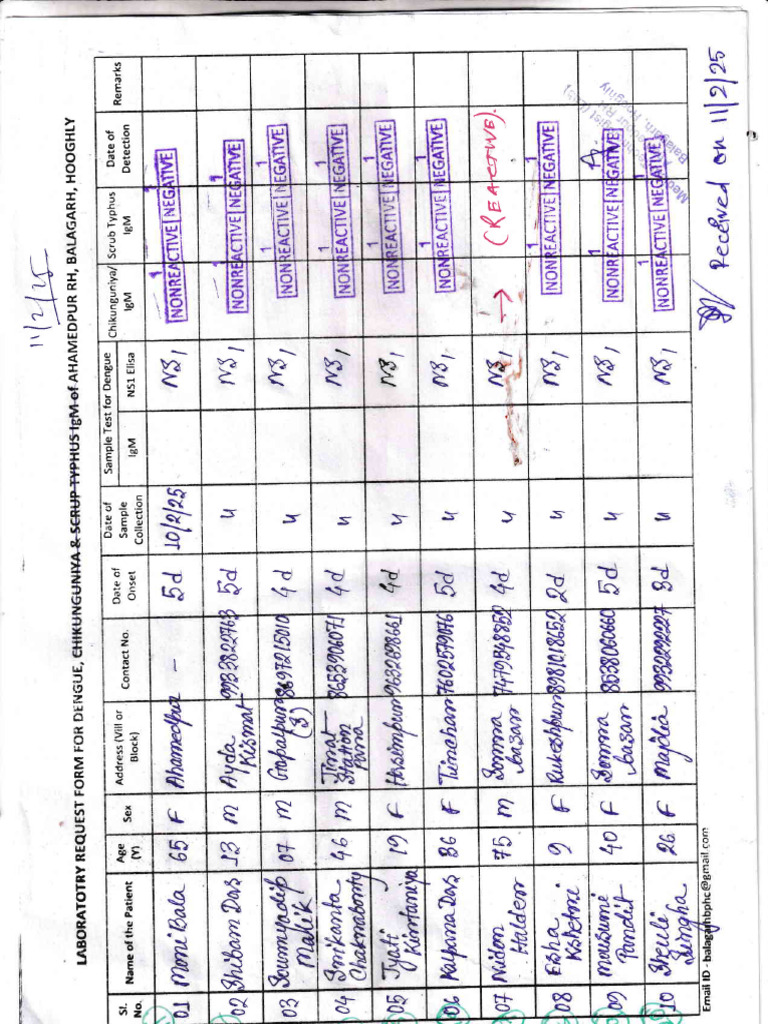 11/2/25
LABORATOTRY REQUEST FORM FOR DENGUE, CHIKUNGUNIYA & SCRUP TYPHUS IgM of AHAMEDPUR RH, BALAGARH, HOOGHLY
Sl. No. Name of the Patient Age (Y) Sex Address (Vill or Block) Contact No. Date of Onset Date of Sample Collection Sample Test for Dengue IgM NS1 Elisa Chikunguniya/ IgM Scrub Typhus IgM Date of Detection Remarks
01 Moni Bala 65 F Ahamedpur - 5d 10/2/25 NS1 NONREACTIVE NEGATIVE
02 Shibam Das 13 M Ayda Kismat 9933822763 5d 11 NS1 NONREACTIVE NEGATIVE
03 Soumyadip Malik 07 M Gopalpur (B) 8697215010 4d 11 NS1 NONREACTIVE NEGATIVE
04 Srikanta Chakraborty 46 M Station 8653906071 4d 11 NS1 NONREACTIVE NEGATIVE
05 19 F 9632698661 4d 11 NS1 NONREACTIVE NEGATIVE
06 Kalpana Das 86 F 7602579076 5d 11 NS1 NONREACTIVE NEGATIVE
07 Halder 75 M bazar 7479548852 4d 11 NS1 → (REACTIVE).
08 Esha 9 F 8981018652 2d 11 NS1 NONREACTIVE NEGATIVE
09 Mousumi Pandit 40 F bazar 8538060660 5d 11 NS1 NONREACTIVE NEGATIVE
10 Singha 26 F 9932292227 3d 11 NS1 NONREACTIVE NEGATIVE
Email ID - balagarhbphc@gmail.com
Received on 11/2/25
Balagarh, Hooghly